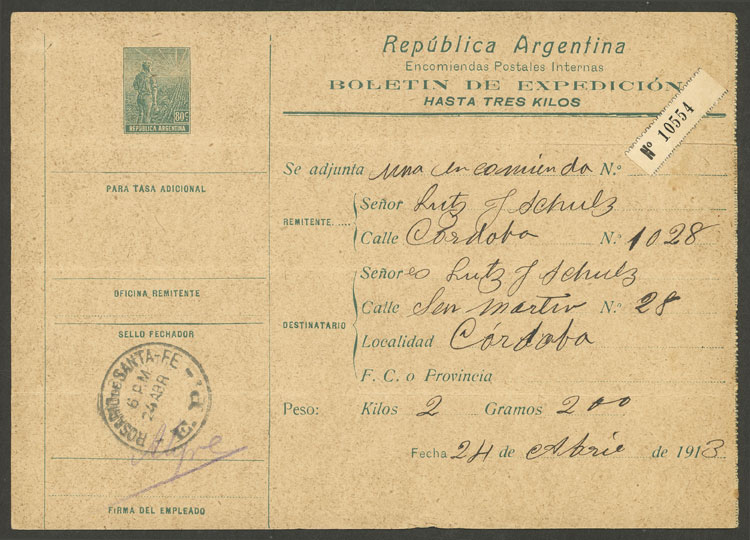 80 c
REPÚBLICA ARGENTINA
República Argentina
Encomiendas Postales Internas
BOLETIN DE EXPEDICIÓN
HASTA TRES KILOS
Nº 10554
PARA TASA ADICIONAL
OFICINA REMITENTE
SELLO FECHADOR
ROSARIO DE SANTA-FE
6 P.M.
24 ABR
FIRMA DEL EMPLEADO
Se adjunta una encomienda N.º
REMITENTE.....
Señor Lutz y Schulz
Calle Córdoba N.º 1028
DESTINATARIO
Señores Lutz y Schulz
Calle San Martin N.º 28
Localidad Córdoba
F. C. o Provincia
Peso: Kilos 2 Gramos 200
Fecha 24 de Abril de 1913